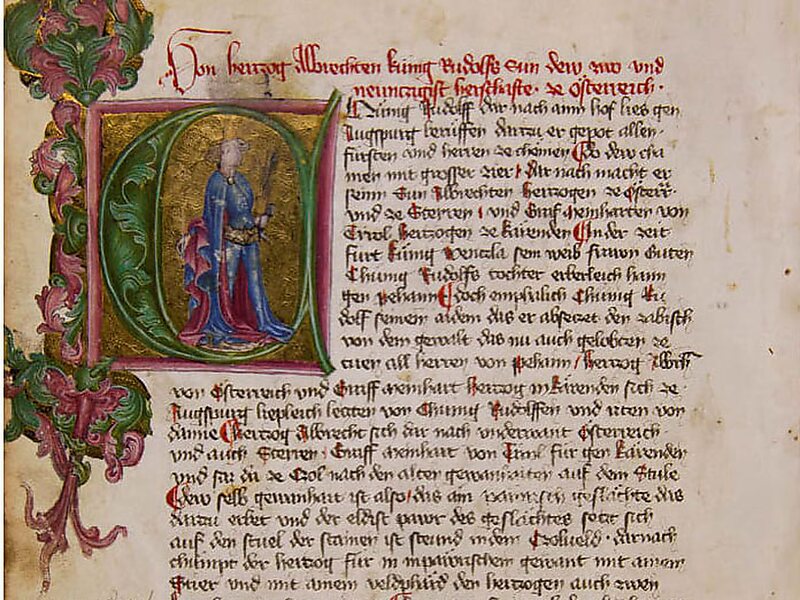 Von hertzog Albrechten künig Rudolfs Sun dew zwo und
neuntzigist herschafte ze Österreich
Künig Rudolff dar nach ainn hof lies gen
Augspurg berüffen dartzu er gepot allen
fürsten vnd herren ze chomen Do dew cha
men mit grosser zier dar nach macht er
seinn Sun Albrechten hertzogen ze Österr
vnd ze Steyren vnd Graf Meinharten von
Tyrol hertzogen ze kärenden In der zeit
fürt künig wentzla sein weib frawn Guten
Chunig Rudolfs tochter erberleich haim
gen pehaim doch emphalich Chunig Ru
dolf seinem aidem das er absetzet den zabisch
von dem gewalt das nu auch gelobten ze
tuen all herren von pehaim hertzog Albrecht
von Österreich vnd Graff meinhart hertzog in kärenden sich ze
Augspurg liepleich letzten von Chunig Rudolffen vnd riten von
danne Hertzog Albrecht sich dar nach vnderwant Österreich
vnd auch Steyren Graff meinhart von Tirol für gen kärenden
vnd sas da ze Zol nach den alten gewanhaiten auf dem Stule
Dew selb gewanhait ist also das ain pawrisch geslächte das
dartzu erbet vnd der eldist pawr des geslächtes setzt sich
auf den stuel der stainen ist stend in dem Zolueld dar nach
chumpt der hertzog für in in pawrischem gewant mit ainem
Stier vnd mit ainem veldphärd den hertzogen auch zwen